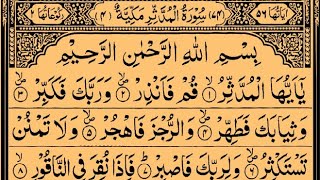 اٰیَاتُهَا ٥٦ (٧٤) سُوْرَةُ الْمُدَّثِّرِ مَكِّیَّةٌ (٤) رُكُوْعَاتُهَا ٢
بِسْمِ اللهِ الرَّحْمٰنِ الرَّحِیْمِ
یٰۤاَیُّهَا الْمُدَّثِّرُ ۙ﴿١﴾ قُمْ فَاَنْذِرْ ۪ۙ﴿٢﴾ وَرَبَّكَ فَكَبِّرْ ۪ۙ﴿٣﴾
وَثِیَابَكَ فَطَهِّرْ ۪ۙ﴿٤﴾ وَالرُّجْزَ فَاهْجُرْ ۪ۙ﴿٥﴾ وَلَا تَمْنُنْ
تَسْتَكْثِرُ ۪ۙ﴿٦﴾ وَلِرَبِّكَ فَاصْبِرْ ؕ﴿٧﴾ فَاِذَا نُقِرَ فِی النَّاقُوْرِ ۙ﴿٨﴾